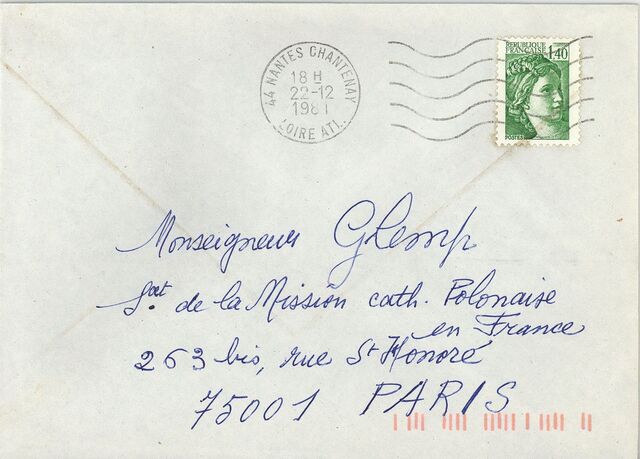 44 NANTES CHANTENAY
18 H
22-12
1981
LOIRE ATL.
REPUBLIQUE
FRANCAISE
1,40
POSTES
Monseigneur Glemp
S.at de la Mission cath. Polonaise
en France
263 bis, rue St Honoré
75001 PARIS